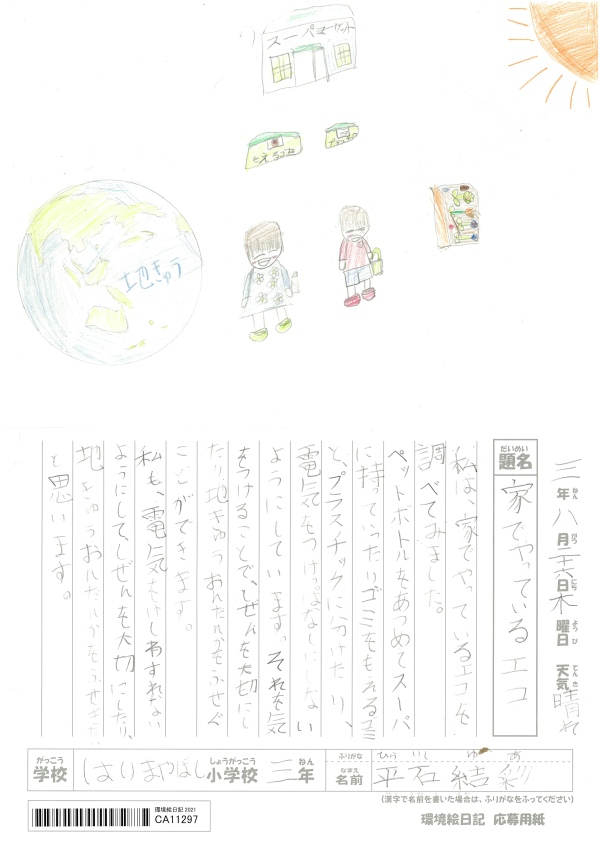 スーパーマーケット
もえるゴミ
プラごみ
地きゅう
三年八月二六日木曜日 天気晴れ
ねん がつ にち ようび てんき
だいめい
題名
家でやっているエコ
私は、家でやっているエコを
調べてみました。
ペットボトルをあつめてスーパー
に持っていったりゴミをもえるゴミ
と、プラスチックに分けたり、
電気をつけっぱなしにしない
ようにしています。それを気
をつけることで、しぜんを大切にし
たり地きゅうおんだんかをふせぐ
ことができます。
私も、電気をけしわすれない
ようにして、しぜんを大切にしたり、
地きゅうおんだんかをふせぎたい
と思います。
がっこう
学校
はりまやばし
しょうがっこう
小学校
三
ねん
年
ふりがな
ひら いし ゆ あ
なまえ
名前
平石 結彩
(漢字で名前を書いた場合は、ふりがなをふってください)
環境絵日記 2021
CA11297
環境絵日記 応募用紙